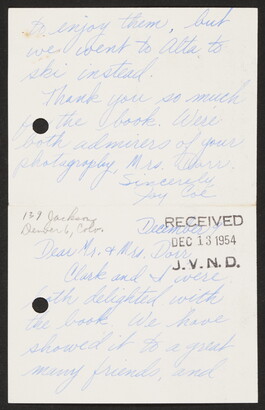 to enjoy them, but
we went to Alta to
ski instead.
Thank you so much
for the book. Were
both admirers of your
photography, Mrs. Dorr.
Sincerely
Joy Coe
129 Jackson
Denver 6, Colo.
December 9
RECEIVED
DEC 13 1954
J. V. N. D.
Dear Mr. & Mrs. Dorr
Clark and I were
both delighted with
the book We have
showed it to a great
many friends, and